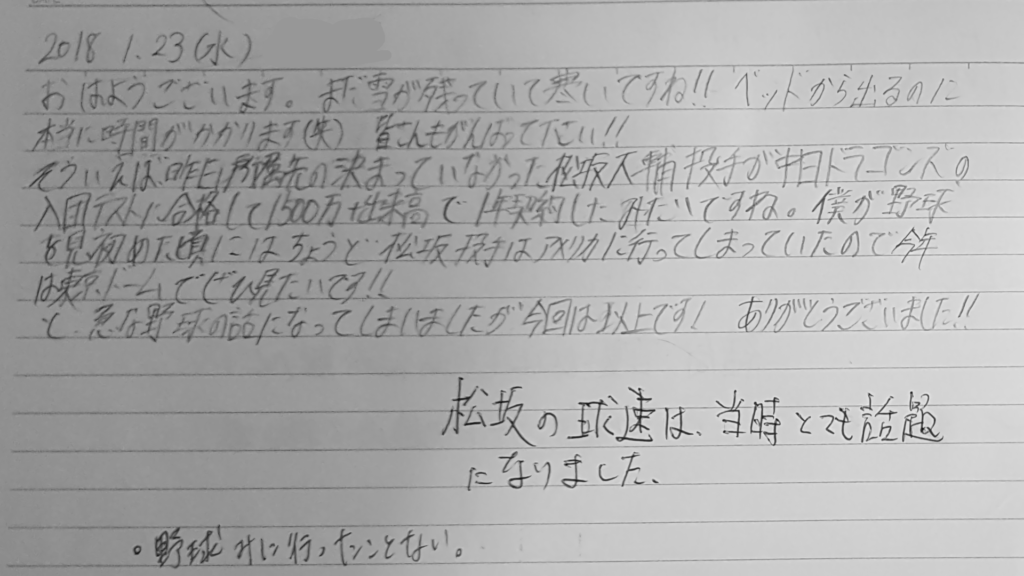 2018 1.23(水)
おはようございます。まだ雪が残っていて寒いですね!! ベッドから出るのに
本当に時間がかかります(笑) 皆さんもがんばって下さい!!
そういえば昨日所属先の決まっていなかった松坂大輔投手が中日ドラゴンズの
入団テストに合格して1500万+出来高で1年契約したみたいですね。僕が野球
を見初めた頃にはちょうど松坂投手はアメリカに行ってしまっていたので今年
は東京ドームでぜひ見たいです!!
と、急な野球の話になってしまいましたが今回は以上です! ありがとうございました!!
松坂の球速は、当時とても話題
になりました、
。野球みに行ったことない。